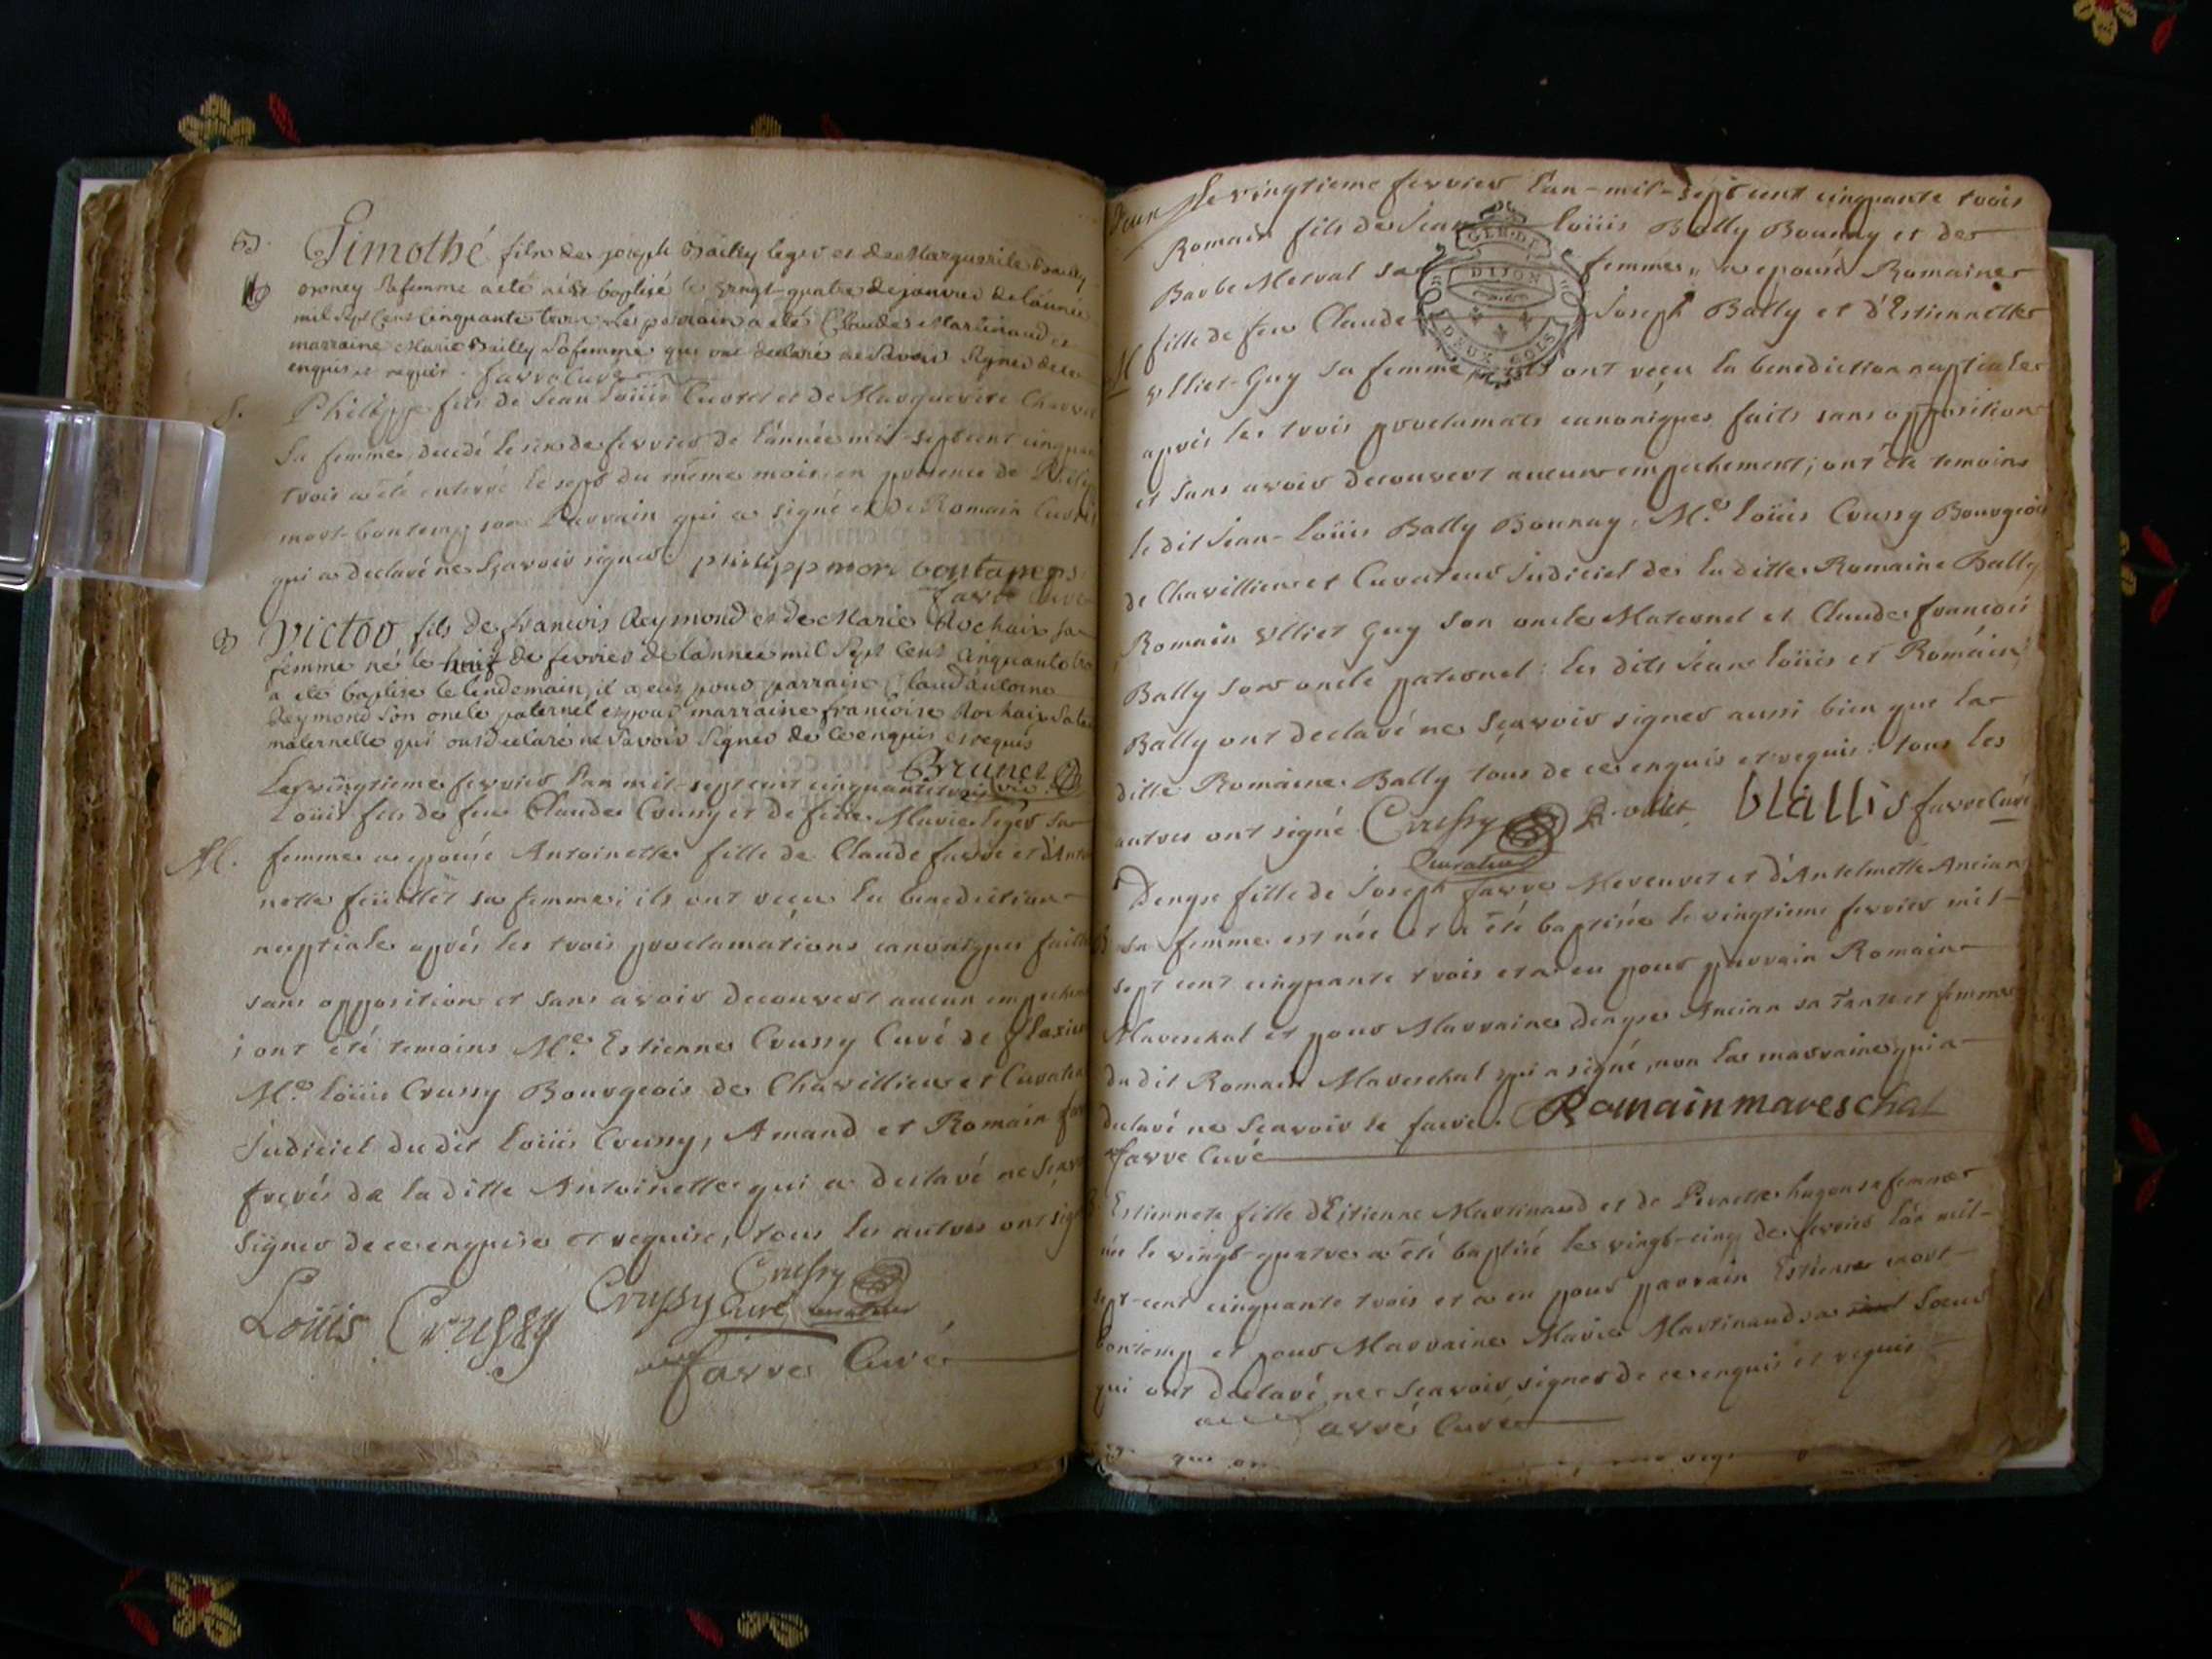 B.
Timothé fils de joseph Bailly leger et de Marguerite Bailly
sa femme a eté né et baptisé le vingt-quatre de janvier de l'année
mil sept cent cinquante trois, Le parrain a eté Claude Martinaud et
marraine Marie Bailly sa femme qui ont declaré ne savoir signer de ce
enquis et requis. favre Curé
S.
Philippe fils de Jean Loüis Curtet et de Marguerite
sa femme, decedé le six de fevrier de l'année mil-sept cent cinquante
trois a été enterré le sept du même mois en presence de
mort-bontemp son Parrain qui a signé et de Romain Curtet
qui a declaré ne sçavoir signer. philipp mort bontamps
favre Curé
B
Victor fils de françois Reymond et de Marie Rochaix sa
femme né le huit de fevrier de l'année mil sept cent cinquante trois
a eté baptisé le lendemain, il a eu pour parrain Claud'antoine
Reymond son oncle paternel et pour marraine françoise Rochaix sa tante
maternelle qui ont declaré ne savoir signer de ce enquis et requis
Brunel vic.
Le vingtieme fevrier l'an mil-sept cent cinquante trois
Loüis fils de feu Claude Crussy et de feüe Marie leger sa
M.
femme a epousé Antoinette fille de Claude favre et d'Antoi
nette feüillet sa femme; ils ont reçu la benediction
nuptiale aprés les trois proclamations canoniques faittes
sans opposition et sans avoir decouvert aucun empechement
; ont été temoins Mre. Estienne Crussy Curé de flaxieu
Mre. loüis Crussy Bourgeois de Chavillieu et Curateur
Judiciel du dit loüis Crussy, Amand et Romain favre
freres de la ditte Antoinette qui a declaré ne sçavoir
signer de ce enquise et requise, tous les autres ont signé
Crussy
Loüis Crussy Crussy Curé curateur
favre Curé
Le vingtieme fevrier l'an-mil-sept cent cinquante trois
Romain fils de Jean loüis Bally Bounay et de
Barbe Merval sa femme, a epousé Romaine
GEN. DE DIJON
DEUX SOLS
fille de feu Claude Joseph Bally et d'Estiennette
M
Ulliet-Guy sa femme, ils ont reçu la benediction nuptiale
aprés les trois proclamats canoniques faits sans opposition
et sans avoir decouvert aucun empechement; ont été temoins
le dit Jean-Loüis Bally Bounay, Mre. loüis Crussy Bourgeois
de Chavillieu et Curateur Judiciel de la ditte Romaine Bally
Romain Ulliet Guy son oncle Maternel et Claude françois
Bally son oncle paternel: les dits Jean loüis et Romain
Bally ont declaré ne sçavoir signer aussi bien que la
ditte Romaine Bally tous de ce enquis et requis: tous les
autres ont signé Crussy favre Curé
Curateur
Denyse fille de Joseph favre Mereuret et d'Antelmette Ancian
B
sa femme est née et a été baptisée le vingtieme fevrier mil-
sept cent cinquante trois et a eu pour parrain Romain
Mareschal et pour Marraine denyse Ancian sa tante et femme
du dit Romain Mareschal qui a signé, non la marraine qui a
declaré ne sçavoir le faire. Romain mareschal
favre Curé
Estiennete fille d'Estienne Martinaud et de Pernette hugon sa femme
née le vingt-quatre a été baptisé le vingt-cinq de fevrier l'an mil-
sept-cent cinquante trois et a eu pour parrain Estienne mort-
bontemp et pour Marraine Marie Martinaud sa soeur
qui ont declaré ne sçavoir signer de ce enquis et requis
favre Curé